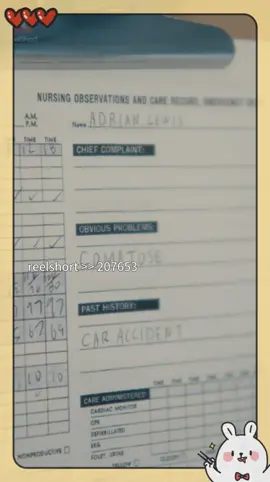 NURSING OBSERVATIONS AND CARE RECORD, EMERGENCY
A.M.
P.M.
Name ADRIAN LEWIS
TIME TIME
12 18
CHIEF COMPLAINT:
OBVIOUS PROBLEMS:
COMATOSE
reelshort >> 207653
97 97
PAST HISTORY:
67 69
CAR ACCIDENT
10 10
CARE ADMINISTERED
TIME TIME TIME TIME TIME
CARDIAC MONITOR
CPR
DEFIBRILLATED
EKG
FOLEY URINE
NONPRODUCTIVE
YELLOW
CLOUDY